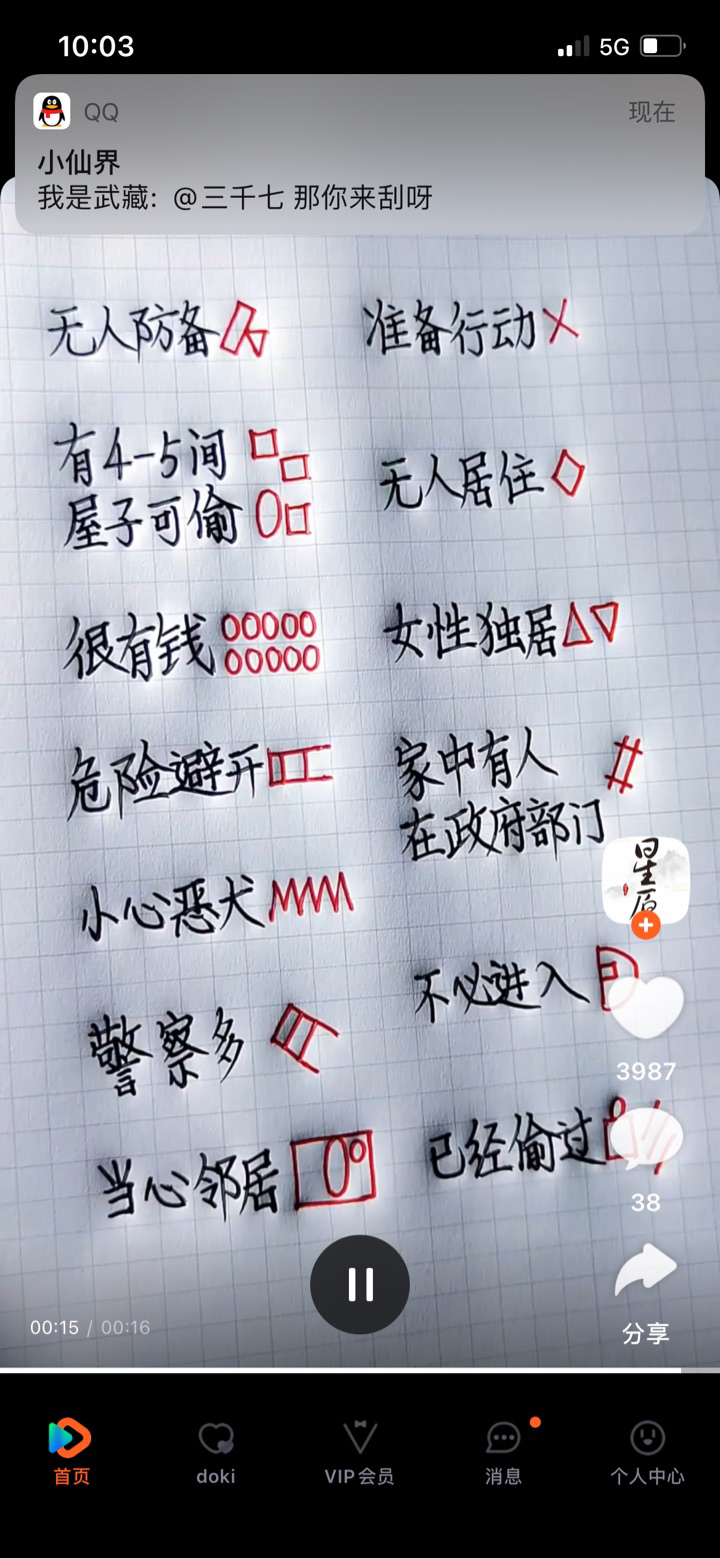 10:03
5G
QQ
现在
小仙界
我是武藏: @三千七 那你来刮呀
无人防备
准备行动
有4-5间
屋子可偷
无人居住
很有钱
女性独居
危险避开
家中有人
在政府部门
小心恶犬
不必进入
警察多
已经偷过
当心邻居
3987
38
分享
00:15 / 00:16
首页
doki
VIP会员
消息
个人中心